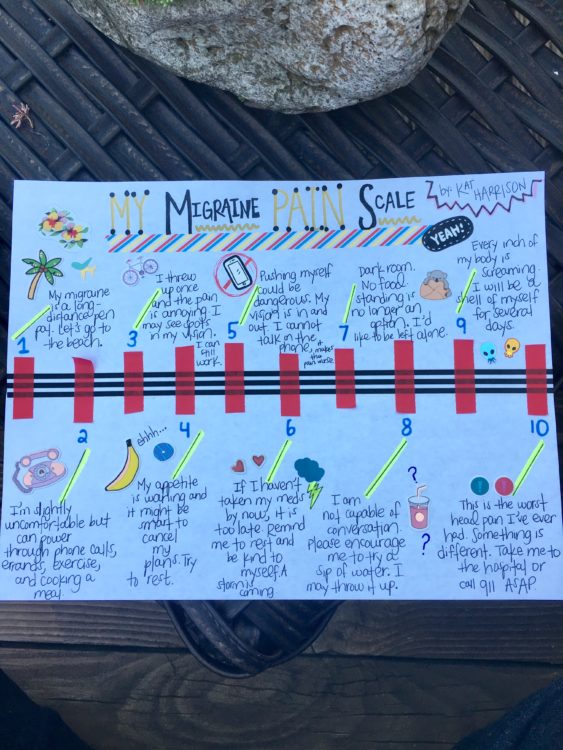 MY MIGRAINE PAIN SCALE
by: KAT
HARRISON
YEAH!
1
My migraine
is a long-
distance pen
pal. Let's go to
the beach.
2
I'm slightly
uncomfortable but
can power
through phone calls,
errands, exercise,
and cooking a
meal
3
I threw
up once
and the pain
is annoying. I
may see spots
in my vision.
I can
still
work.
4
ehhh...
My appetite
is waning and
it might be
smart to
cancel
my
plans. Try
to rest.
5
Pushing myself
could be
dangerous. My
vision is in and
out. I cannot
talk on the
phone, it makes
the
pain worse
6
If I haven't
taken my meds
by now, it is
too late. Remind
me to rest and
be kind to
myself. A
storm is
coming
7
Dark room.
No food.
standing is
no longer an
option. I'd
like to be left alone.
8
I am
not capable of
conversation.
Please encourage
me to try a
sip of water. I
may throw it up.
?
?
9
Every inch of
my body is
screaming.
I will be a
shell of myself
for several
days.
10
This is the worst
head pain I've ever
had. Something is
different. Take me to
the hospital or
call 911 ASAP.